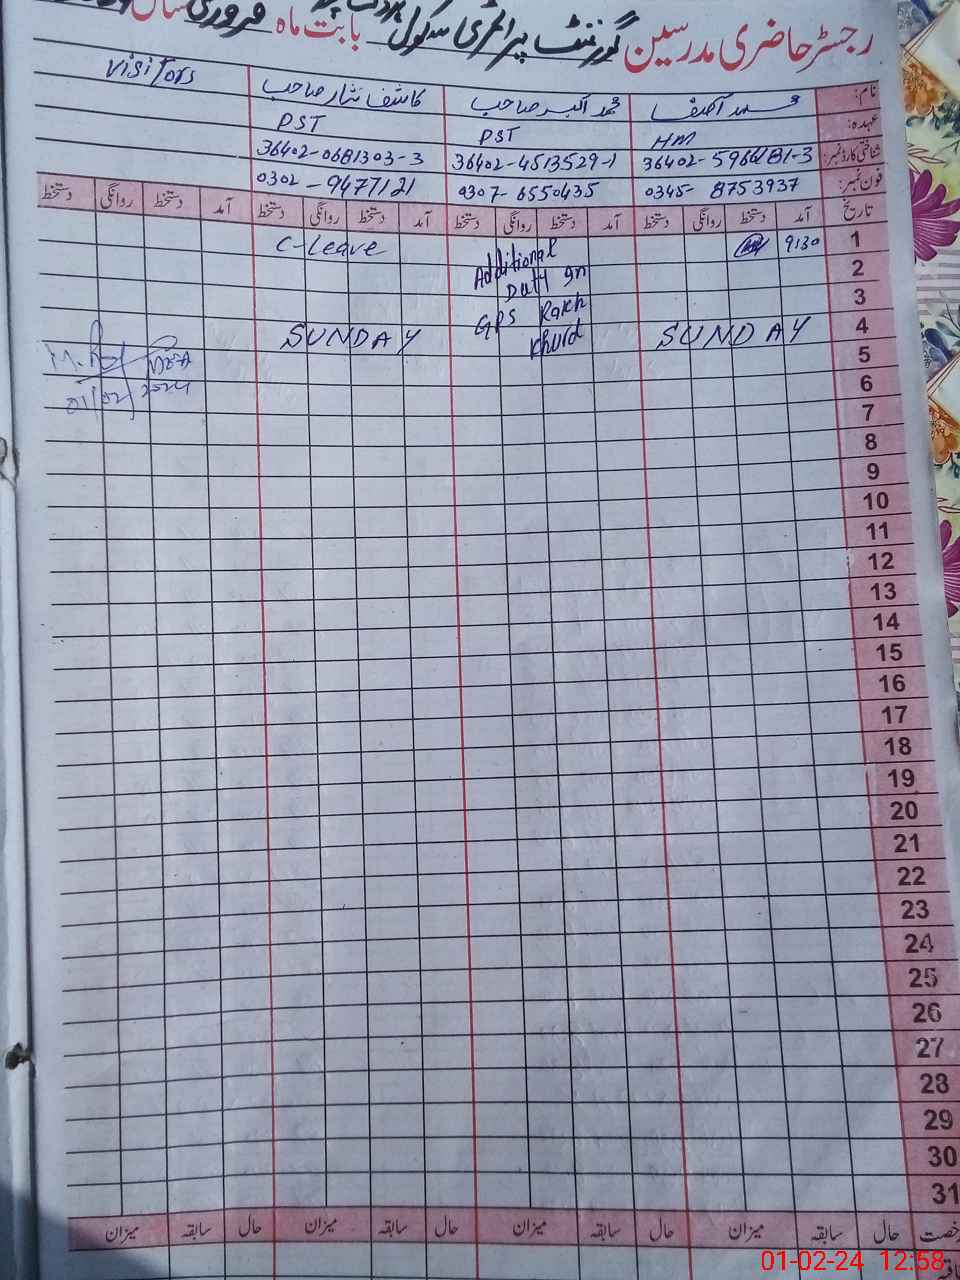 رجسٹر حاضری مدرسین گورنمنٹ پرائمری سکول بابت ماہ فروری سال
نام: محمد آصف محمد اکبر صاحب کاشف نثار صاحب Visitors
عہدہ: HM PST PST
شناختی کارڈ نمبر: 36402-5966181-3 36402-4513529-1 36402-0681303-3
فون نمبر: 0345-8753937 0307-6550435 0302-9477121
تاریخ آمد دستخط روانگی دستخط آمد دستخط روانگی دستخط آمد دستخط روانگی دستخط آمد دستخط روانگی دستخط
1 9:30 Additional C-Leave
2 Duty on
3 GPS Rakh
4 SUNDAY Khurd SUNDAY
5
6 01/02/2024
7
8
9
10
11
12
13
14
15
16
17
18
19
20
21
22
23
24
25
26
27
28
29
30
31
رخصت حال سابقہ میزان حال سابقہ میزان حال سابقہ میزان حال سابقہ میزان
01-02-24 12:58